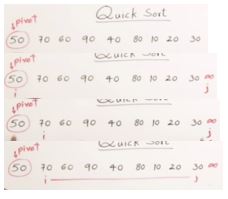 Quick Sort
pivot
50 70 60 90 40 80 10 20 30
Quick Sort
pivot
50 70 60 90 40 80 10 20 30 ∞
i j
Quick Sort
pivot
50 70 60 90 40 80 10 20 30 ∞
i j
Quick Sort
pivot
50 70 60 90 40 80 10 20 30 ∞
i j